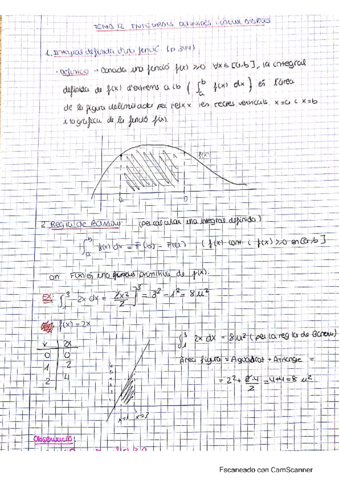 TEMA 12 INTEGRALS DEFINIDES I CÀLCUL D'ÀREES
1. Integral definida d'una funció
· Definició → Donada una funció f(x) ≥ 0 ∀x ∈ [a,b], la integral
definida de f(x) d'extrems a i b ( ∫_a^b f(x) dx ) és l'àrea
de la figura delimitada per l'eix x les rectes verticals x=a i x=b
i la gràfica de la funció f(x).
f(x)
a b
2. REGLA DE BARROW (per calcular una integral definida)
∫_a^b f(x) dx = F(b) - F(a) ( f(x) cont i f(x) > 0 en [a,b]
on F(x) és una funció primitiva de f(x).
EX: ∫_1^3 2x dx = 2x²/2 ]_1^3 = 3² - 1² = 8 u²
f(x) = 2x
x 2x
0 0
1 2
2 4
∫_1^3 2x dx = 8 u² (per la regla de Barrow)
Àrea figura = A quadrat + A triangle =
= 2² + 2·4/2 = 4+4 = 8 u²
x=1 x=3
Observació:
Escaneado con CamScanner